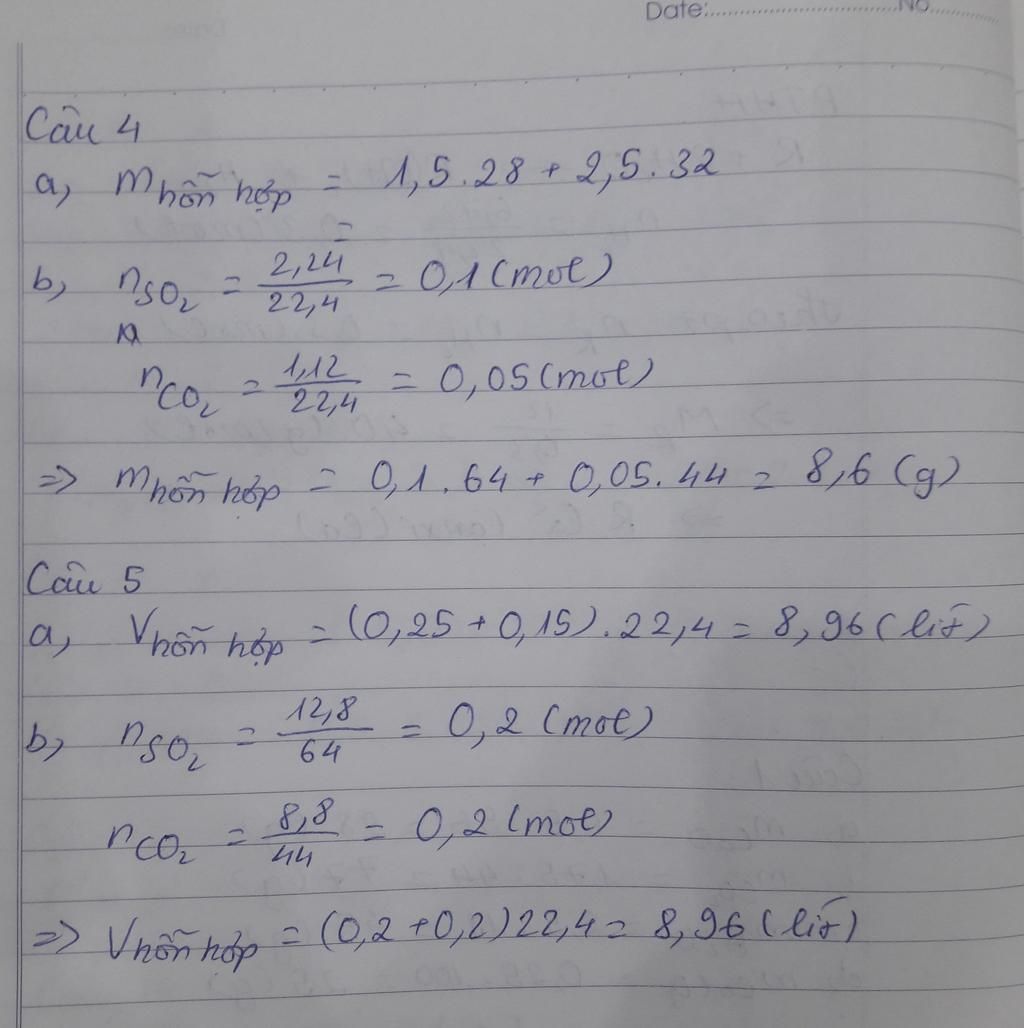 Date: No
Câu 4
a, m hỗn hợp = 1,5.28 + 2,5.32
=
b, nSO2 = 2,24/22,4 = 0,1 (mol)
nCO2 = 1,12/22,4 = 0,05 (mol)
=> m hỗn hợp = 0,1.64 + 0,05.44 = 8,6 (g)
Câu 5
a, V hỗn hợp = (0,25 + 0,15).22,4 = 8,96 (lít)
b, nSO2 = 12,8/64 = 0,2 (mol)
nCO2 = 8,8/44 = 0,2 (mol)
=> V hỗn hợp = (0,2 + 0,2)22,4 = 8,96 (lít)